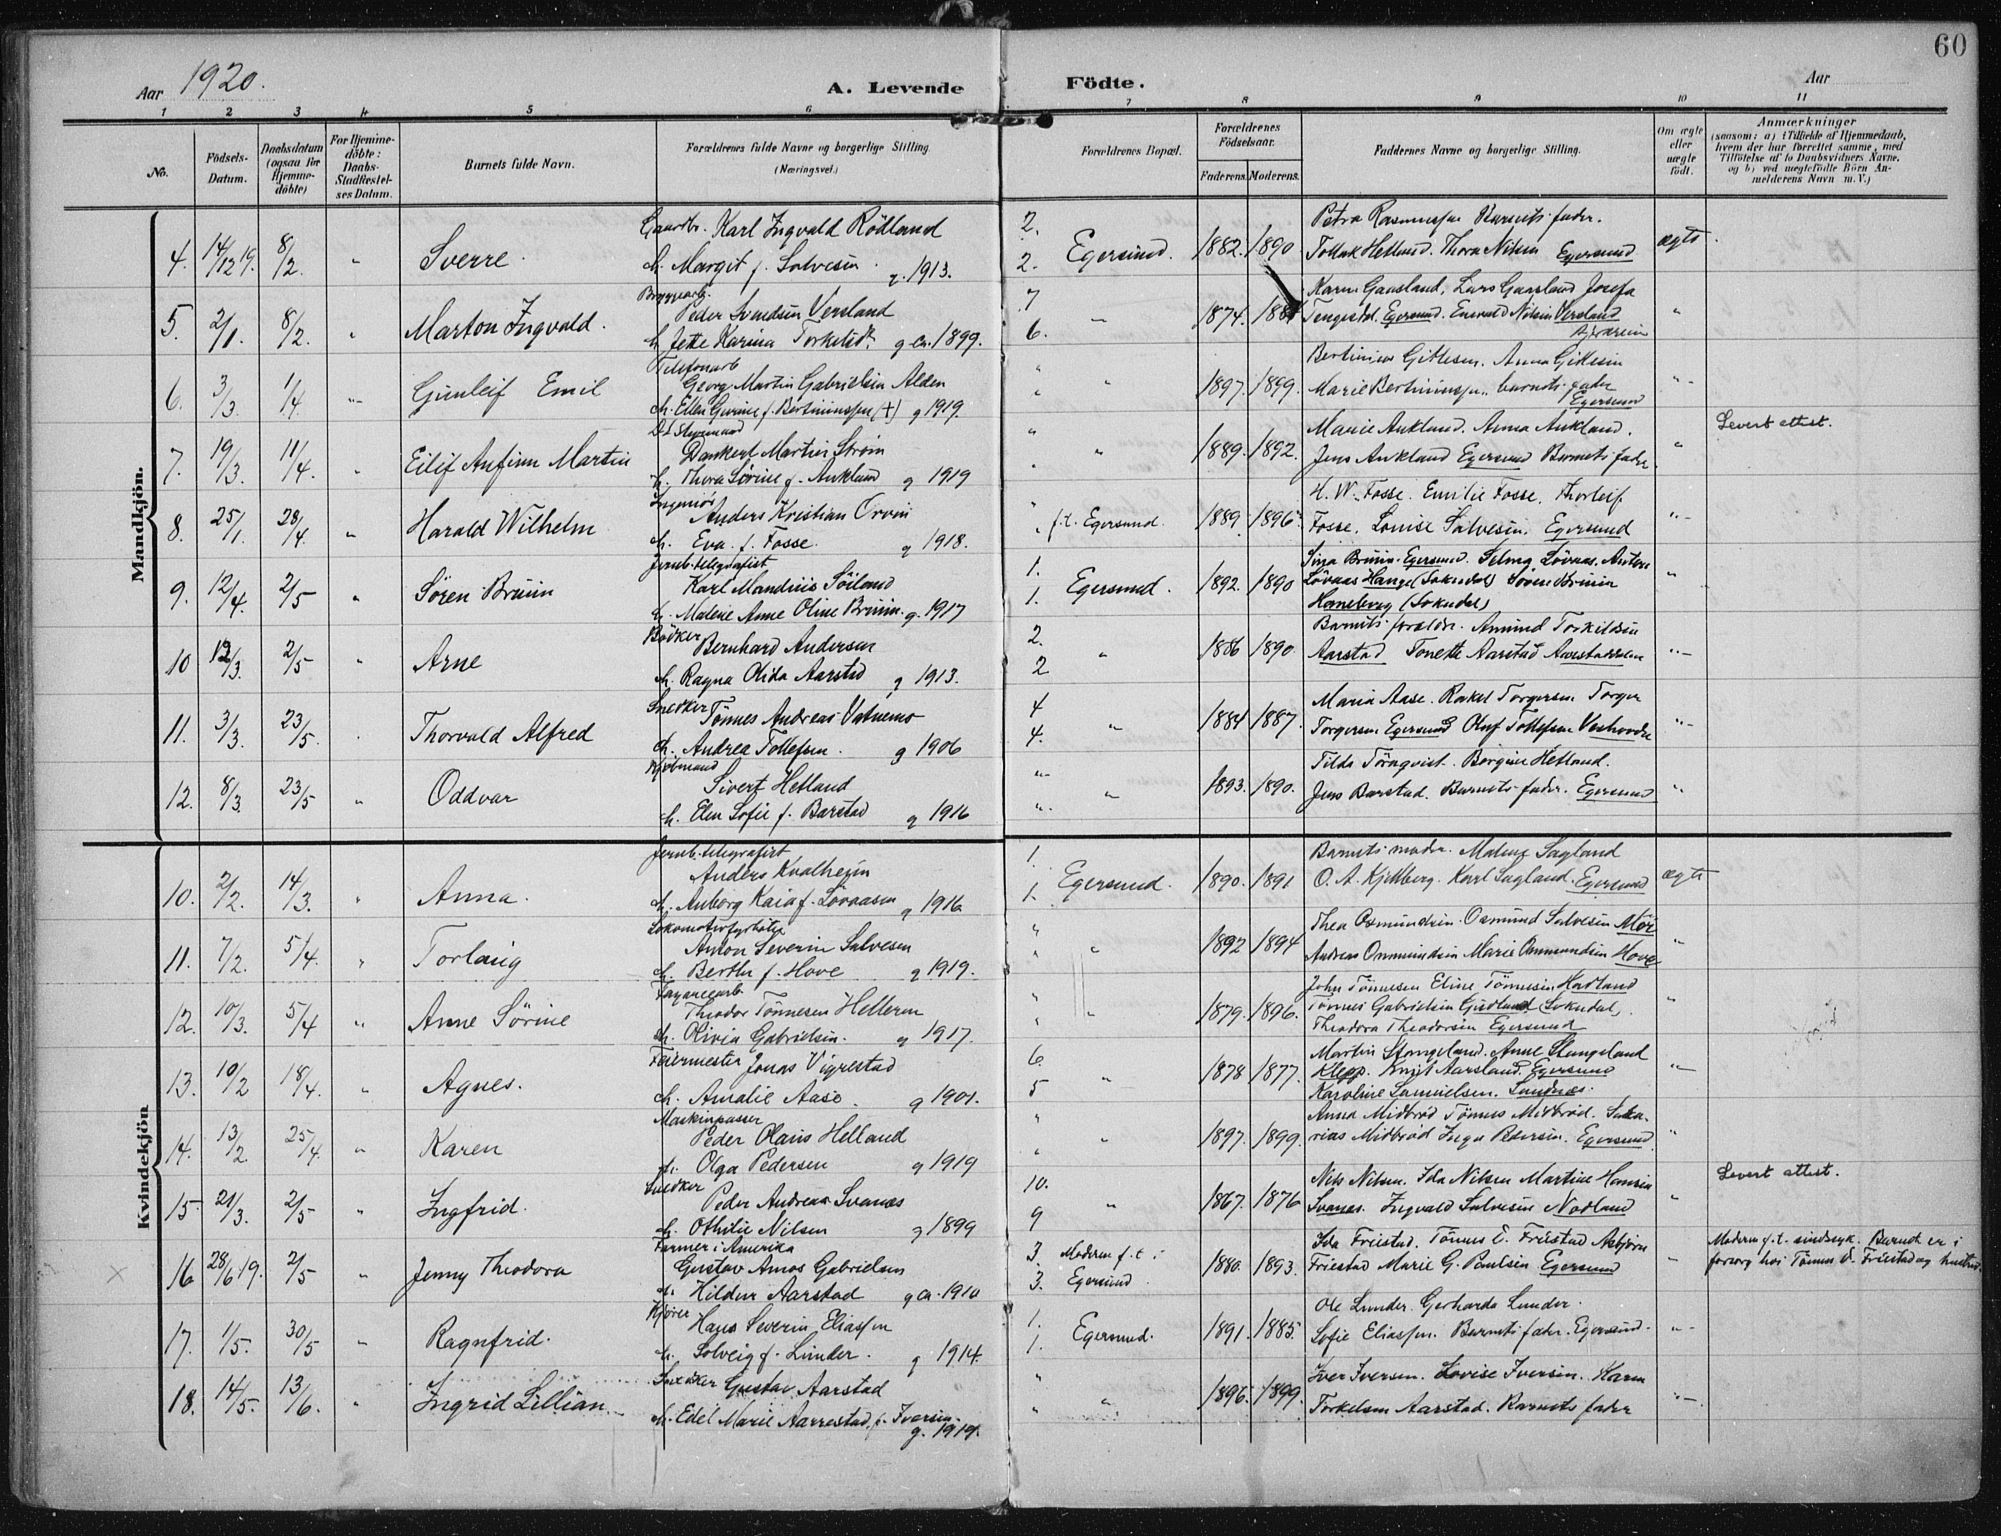 60
Aar 1920.
A. Levende Födte.
Aar
1 2 3 4 5 6 7 8 9 10 11
No.
Födsels-
Datum.
Daabsdatum
(ogsaa for
Hjemme-
döbte)
For Hjemme-
döbte:
Daabs-
Stadfæstel-
ses Datum.
Barnets fulde Navn.
Forældrenes fulde Navne og borgerlige Stilling.
(Næringsvei.)
Forældrenes Bopæl.
Forældrenes
Födselsaar.
Faderens. Moderens.
Faddernes Navne og borgerlige Stilling.
Om ægte
eller
uægte
födt.
Anmærkninger
(saasom: a) i Tilfælde af Hjemmedaab,
hvem der har forrettet samme, med
Tilföielse af to Daabsvidners Navne,
og b) ved uægtefödte Börn An-
melderens Navn m. V.)
Mandkjön.
4. 14/12 19. 8/2. " Sverre.
Gaardbr. Karl Ingvald Rödland
h. Margit f. Salvesen g. 1913.
2. 2. Egersund. 1882. 1890
Petra Rasmussen Barnets fader.
Tollak Hetland. Thora Nilsen Egersund
ægte
5. 2/1. 8/2. " Marton Ingvald.
Bryggearb.
Peder Svendsen Versland
h. Jette Karina Torkelsd. g ca. 1899.
7 6. " 1874.
Karen Gaasland, Lars Gaasland Josefa
Tengesdal. Egersund. Enevald Nilsen Versland
"
6. 3/3. 1/4. " Gunleif Emil
Telefonarb
Georg Martin Gabrielsen Alden
h. Ellen Gurine f. Bertiniussen (+) g 1919.
" " " 1897. 1899.
Bertinius Gittesen. Anna Gittesen
Marie Bertiniussen. barnets fader
Egersund
"
7. 19/3. 11/4. " Eilif Anfinn Martin
D.S. Styrmand
Dankert Martin Strøm
h. Thora Sørine f. Aukland g 1919
" " " 1889. 1892.
Marie Aukland. Anna Aukland.
Jens Aukland Egersund Barnets fader.
" Levert attest.
8. 25/1. 28/4. " Harald Wilhelm
Ingeniør
Anders Kristian Orvin
h. Eva f. Fosse. g 1918.
" " f.t. Egersund. 1889. 1896.
H. W. Fosse. Emilie Fosse. Thorleif
Fosse. Louise Salvesen. Egersund
"
9. 12/4. 2/5. " Sören Bruun
Jernb.telegrafist
Karl Mandius Söiland
h. Malene Anne Oline Bruun. g. 1917
1. 1. Egersund. 1892. 1890
Sina Bruun. Egersund. Selma Lövaas, Anton
Lövaas Hauge (Sokndal) Sören Bruun
(Sokndal)
"
10 12/3. 2/5 " Arne
Bödker
Bernhard Andersen
h. Ragna Olida Aarstad g 1913.
2. 2 " 1886 1890.
Barnets forældre. Amund Torkildsen
Aarstad Tonette Aarstad Aarstaddalen
"
11. 3/3. 23/5. Thorvald Alfred
Snedker
Tönnes Andreas Vatnemo
h. Andrea Tollefsen. g 1906
4 4. " 1884 1887.
Maria Aase. Rakel Torgersen Torger
Torgersen Egersund Oluf Tollefsen
"
12. 8/3 23/5 " Oddvar
Kjöbmand
Sivert Hetland
h. Elen Sofie f. Barstad g 1916
" " " 1893. 1890.
Tilda Törnqvist. Borgine Hetland.
Jens Barstad. Barnets fader. Egersund
"
Kvindekjön
10. 2/2. 14/3. " Anna.
Jernb.telegrafist
Anders Kvalheim
h. Anborg Kaia f. Lövaasen g 1916.
1. 1. Egersund. 1890. 1891
Barnets moder. Malene Sagland
O. A. Kjellberg. Karl Sagland. Egersund
ægte
11. 7/2. 5/4. " Torlaug
Lokomotivfyrböter
Anton Severin Salvesen
h. Berthe f. Hove g 1919.
" " " 1892 1894
Thea Osmundsen. Osmund Salvesen
Andreas Ommundsen Marie Ommundsen Hove
"
12. 10/3. 5/4 " Anne Sörine
Fayancearb
Theodor Tönnesen Helleren
h. Olivia Gabrielsen. g 1917.
" " " 1879. 1896.
John Tönnesen Eline Tönnesen Hadland
Tönnes Gabrielsen Gudland (Sokndal)
Theodora Theodorsen Egersund
"
13. 10/2 18/4. " Agnes.
Feiermester Jonas Vigrestad
h. Amalie Aase. g 1901.
6. 5 " 1878 1877.
Martin Stangeland. Anne Stangeland
Klepp. Knut Aarsland. Egersund
Karoline Samuelsen. Sandnæs.
"
14. 13/2. 25/4. " Karen
Maskinpasser
Peder Olaus Helland
h. Olga Pedersen g 1919
" " " 1897. 1899.
Anna Midbröd Tönnes Midbröd. Saka-
rias Midbröd Inga Pedersen. Egersund.
"
15 21/3. 2/5 " Ingfrid.
Snedker
Peder Andreas Svanæs
h. Othilie Nilsen g 1899
10. 9 " 1867. 1876
Nils Nilsen. Ida Nilsen Martine Hansen
Svanæs. Ingvald Salvesen Nodland
" Levert attest.
16 28/6 19. 2/5 " Jenny Theodora
Farmer i Amerika
Gustav Amos Gabrielsen
h. Hildur Aarstad g ca. 1910
3. 3. Moderen f.t. i
Egersund. 1880. 1893.
Ida Friestad. Tönnes E. Friestad Asbjörn
Friestad Marie G. Paulsen Egersund
"
Moderen f.t. sindssyk. Barnet er i
forsorg hos Tönnes E. Friestad og hustru.
17. 1/5. 30/5 " Ragnfrid.
Kjörer
Hans Severin Eliassen
h. Solveig f. Lunder. g 1914.
1. 1. Egersund. 1891. 1885.
Ole Lunder. Gerharda Lunder.
Sofie Eliassen. Barnets fader. Egersund.
"
18. 14/5. 13/6. " Ingrid Lillian
Snedker Gustav Aarstad
h. Edel Marie Aarrestad, f. Iversen.
g. 1919.
" " " 1896. 1899.
Iver Iversen. Lovise Iversen. Karen
Torkelsen Aarstad. Barnets fader
"